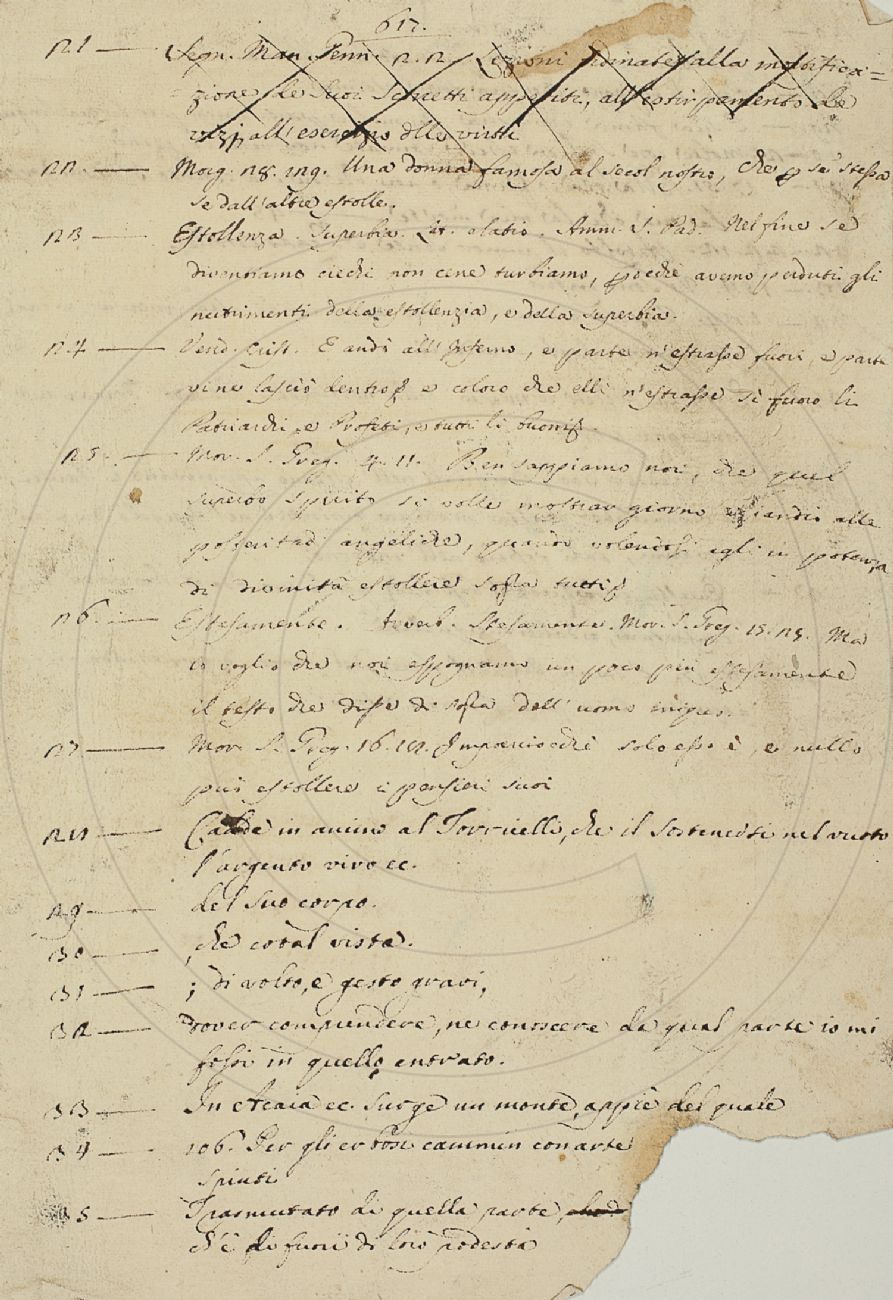 617.
121 — Segn. Man. Genn. 12. 2. Lezioni ordinate alla mortifica=
= zione de suoi scorretti appetiti, all'estirpamento de
vizj, all'esercizio delle virtù
122. — Morg. 28. 129. Una donna famosa al secol nostro, che p se stessa
se dall'altre estolle.
123 — Estollenza. Superbia. Lat. elatio. Amm. S. Pad. Nel fine se
diventiamo ciechi non cene turbiamo, poichè avemo perduti gli
nutrimenti della estollenzia, e della superbia.
124 — Vend. Crist. E andò all'Inferno, e parte n'estrasse fuori, e parte
vi ne lasciò dentro; e coloro che elli n'estrasse si furo li
Patriarchi, e Profeti, e tutti li buoni.
125. — Mor. S. Greg. 4. 11. Ben sappiamo noi, che quel
superbo spirito si volle mostrar giorno eziandio alle
possenti angeliche, quando volendosi egli in potenza
di divinità estollere sopra tutti
126. — Estesamente. Avverb. Stesamente. Mor. S. Greg. 15. 25. Ma
io voglio che noi espognamo un poco più estesamente
il testo che disse di sopra dell'uomo iniquo.
127 — Mor. S. Greg. 16. 18. Imperciocchè solo esso è, e nullo
può estollere i pensieri suoi
128 — Cadde in animo al Torricelli, che il sostenersi nel vuoto
l'argento vivo ec.
129 — del suo corpo.
130 — , che cotal vista.
131 — ; di volto, e gesto gravi,
132 — dover comprendere, ne conoscere da qual parte io mi
fossi in quello entrato.
133 — In Acaia ec. surge un monte, appiè del quale
134 — 106. Per gli erbosi cammin con arte
spinti
135 — Trasmutato di quella parte,
ch'è di fuori di loro podestà